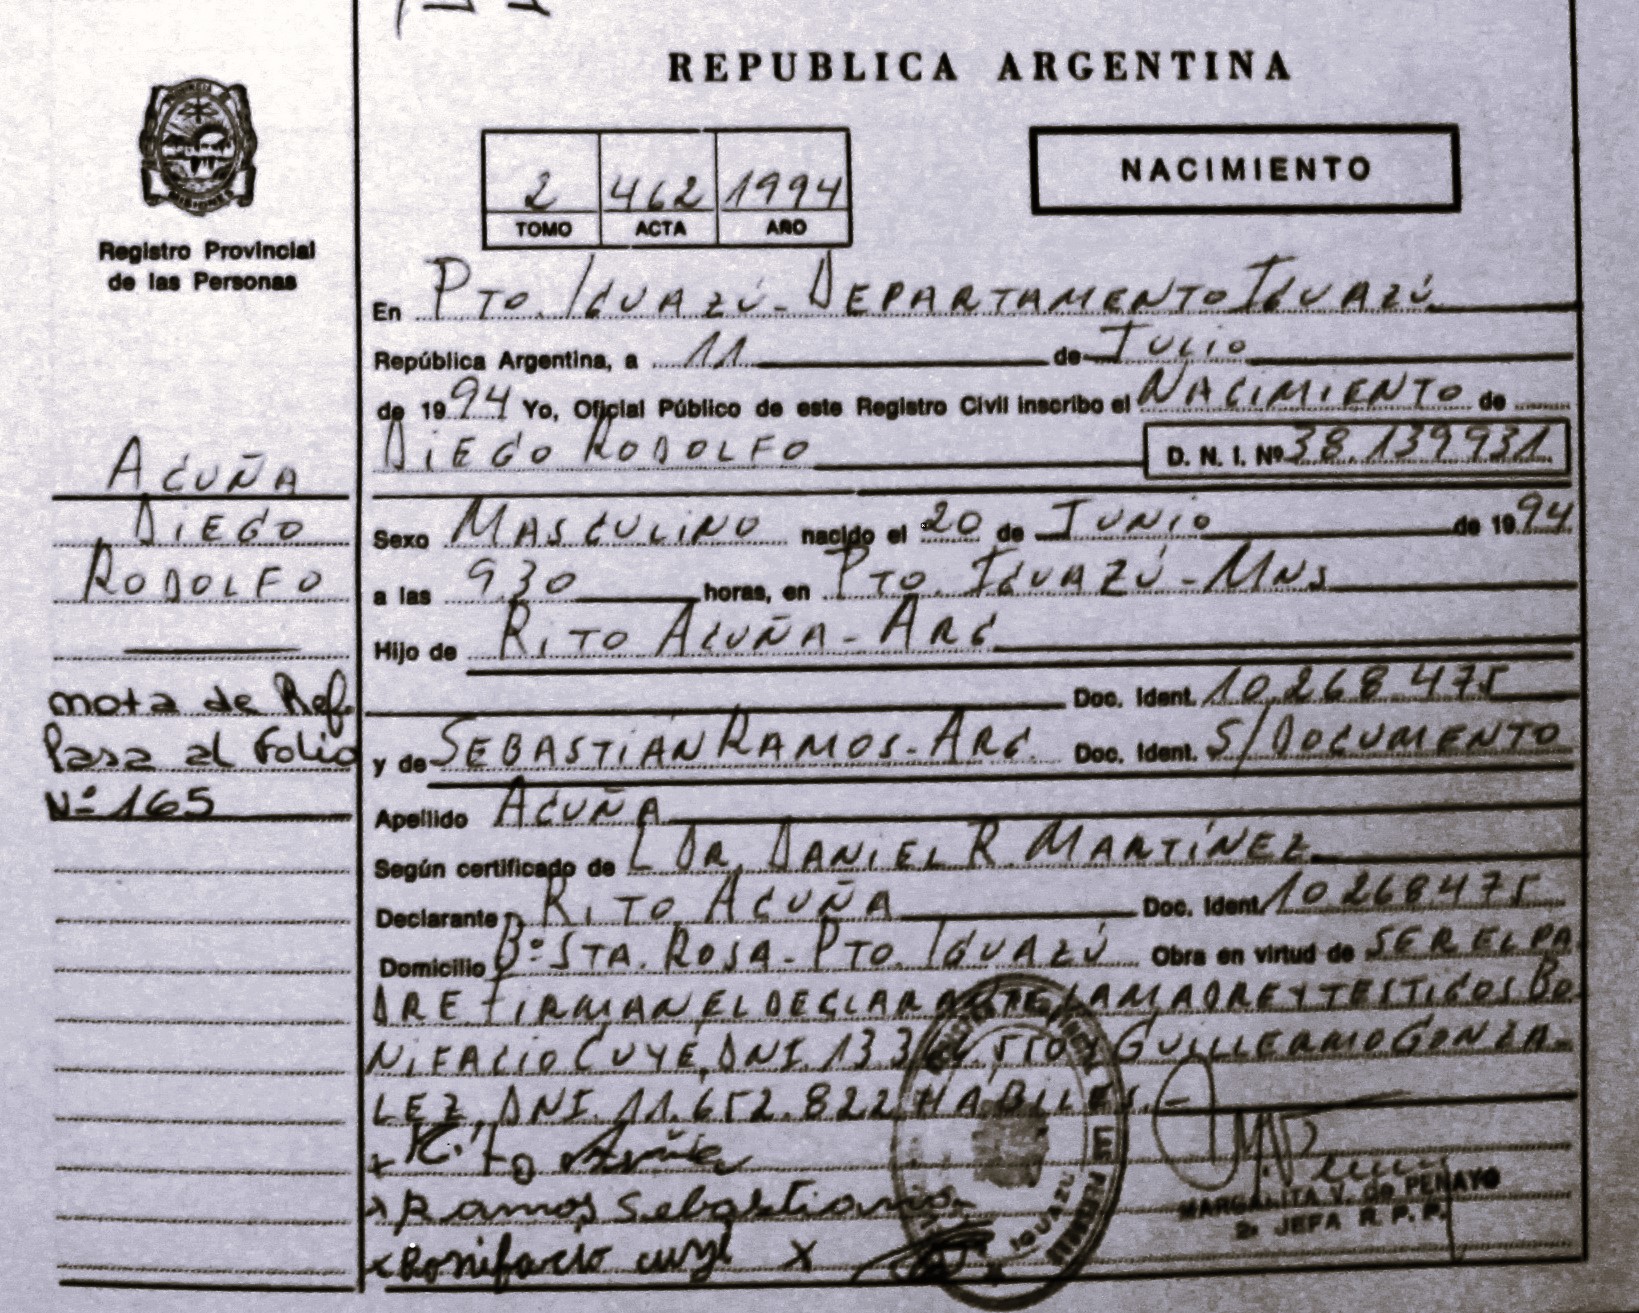 REPUBLICA ARGENTINA
NACIMIENTO
2 462 1994
TOMO ACTA AÑO
Registro Provincial
de las Personas
ACUÑA
DIEGO
RODOLFO
nota de Ref.
Pasa al Folio
Nº 165
En PTO. IGUAZÚ - DEPARTAMENTO IGUAZÚ
República Argentina, a 11 de JULIO
de 1994 Yo, Oficial Público de este Registro Civil inscribo el NACIMIENTO de
DIEGO RODOLFO D. N. I. Nº 38.139931
Sexo MASCULINO nacido el 20 de JUNIO de 1994
a las 9.30 horas, en PTO. IGUAZÚ - MNS
Hijo de RITO ACUÑA - ARG
Doc. Ident. 10.268 475
y de SEBASTIAN RAMOS - ARG. Doc. Ident. S/DOCUMENTO
Apellido ACUÑA
Según certificado de L DR. DANIEL R. MARTÍNEZ
Declarante RITO ACUÑA Doc. Ident. 10268475
Domicilio Bº STA. ROSA - PTO. IGUAZÚ Obra en virtud de SER EL PA
DRE FIRMAN EL DECLARANTE, LA MADRE Y TESTIGOS BO
NIFACIO CUYE, DNI. 13.3 GUILLERMO GONZA-
LEZ, DNI. 11.652.822 HÁBILES.-
Rito Acuña
Ramos Sebastiana
Bonifacio X
MARGALITA V. de PENAYO
JEFA R. P. P.
IGUAZU